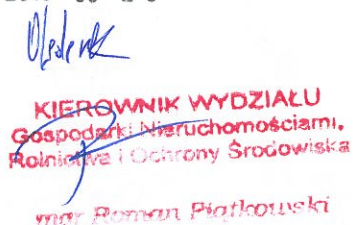 KIEROWNIK WYDZIAŁU
Gospodarki Nieruchomościami,
Rolnictwa i Ochrony Środowiska
mgr Roman Piątkowski